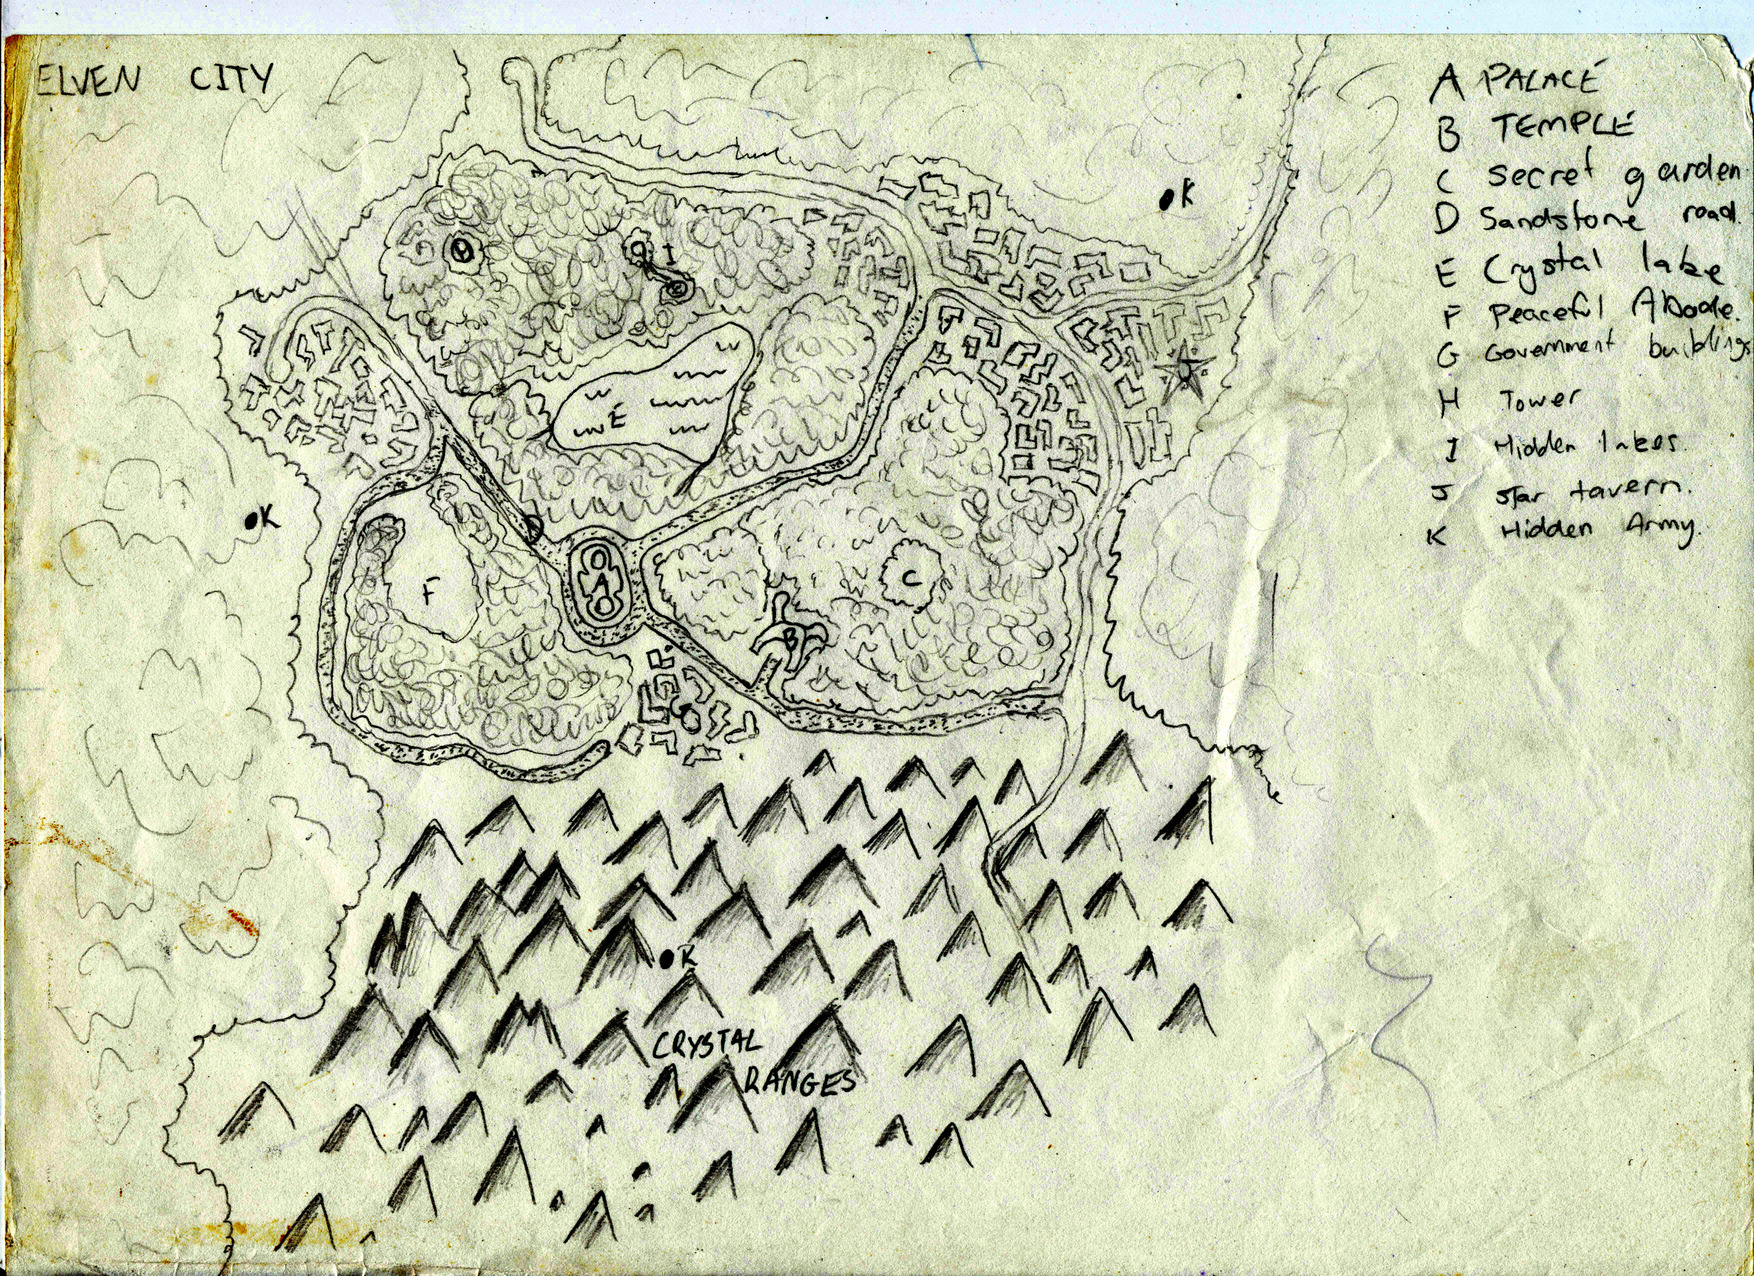 ELVEN CITY
A PALACE
B TEMPLE
C Secret garden
D Sandstone road.
E Crystal lake
F Peaceful Abode.
G Government buildings
H Tower
I Hidden lakes.
J Star tavern.
K Hidden Army.
K
I
J
E
K
D
F
A
C
B
G
K
CRYSTAL
RANGES